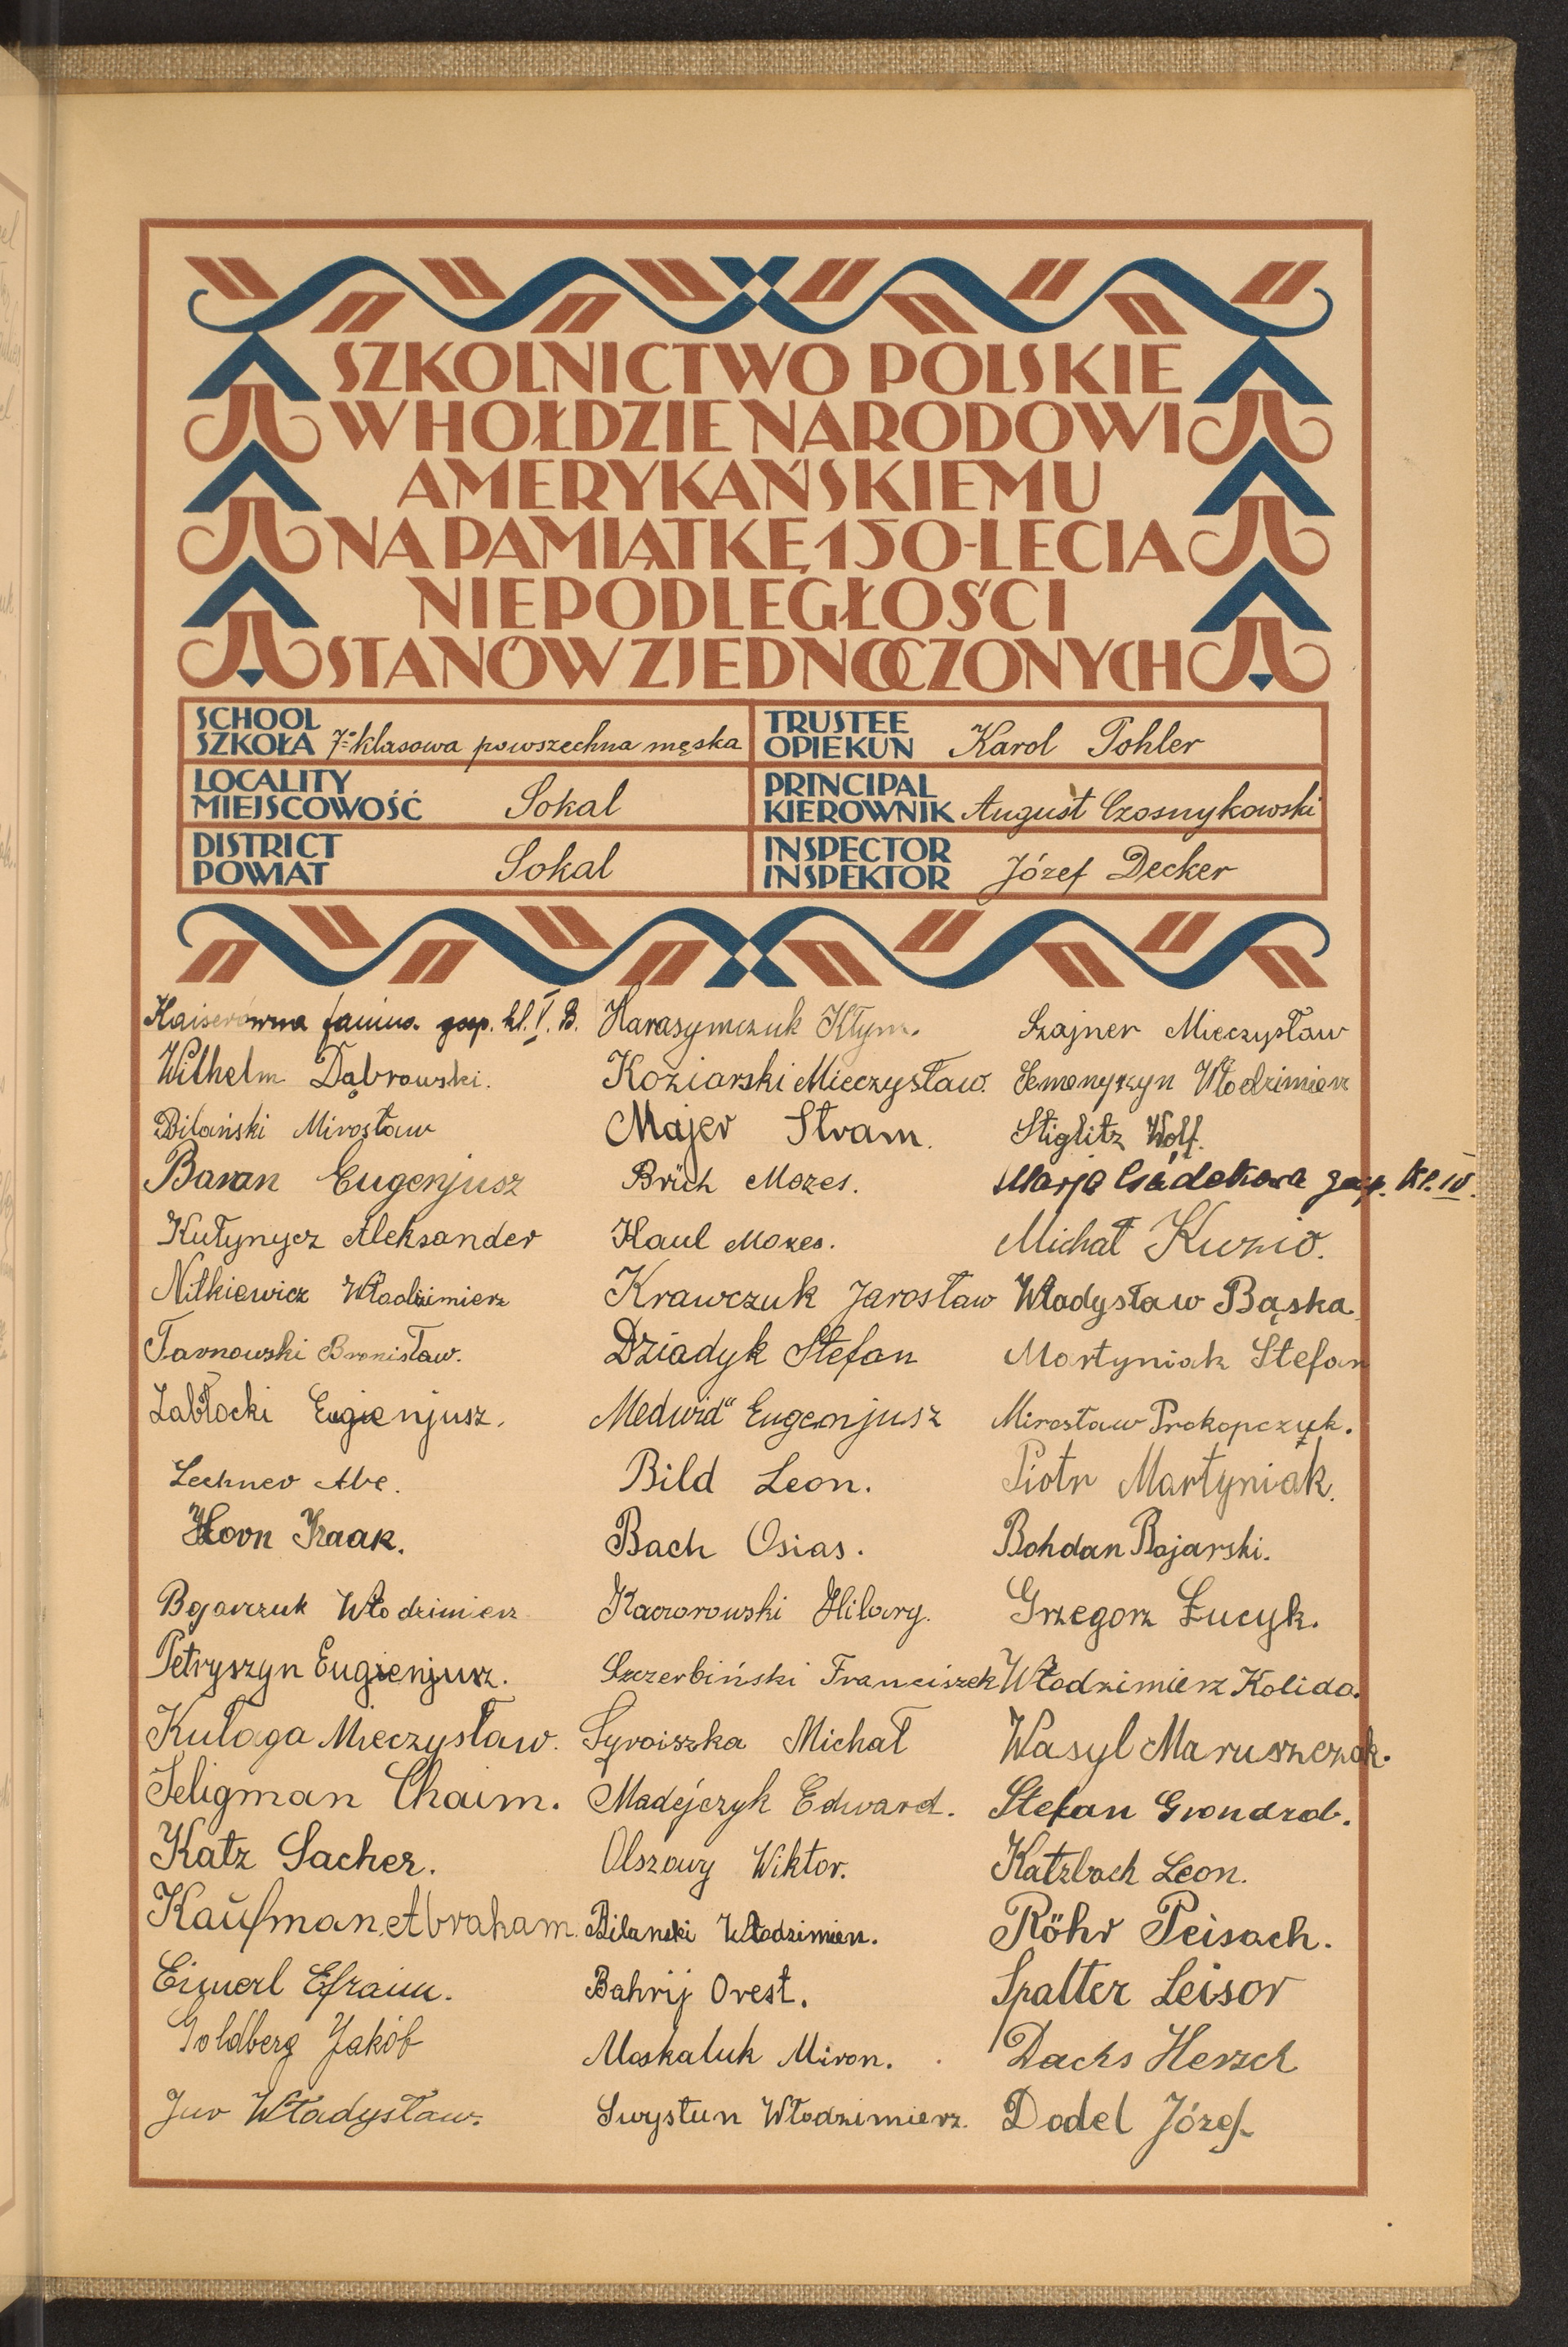 SZKOLNICTWO POLSKIE
W HOŁDZIE NARODOWI
AMERYKAŃSKIEMU
NA PAMIĄTKĘ 150-LECIA
NIEPODLEGŁOŚCI
STANÓW ZJEDNOCZONYCH
SCHOOL
SZKOŁA 7-klasowa powszechna męska
TRUSTEE
OPIEKUN Karol Pohler
LOCALITY
MIEJSCOWOŚĆ Sokal
PRINCIPAL
KIEROWNIK August Czosnykowski
DISTRICT
POWIAT Sokal
INSPECTOR
INSPEKTOR Józef Decker
Kaiserówna gosp. kl. V. B.
Wilhelm Dąbrowski.
Bilański Mirosław
Baran Eugenjusz
Kułynycz Aleksander
Nitkiewicz Włodzimierz
Tarnowski Bronisław.
Zabłocki Eugienjusz.
Lechner Abe.
Horn Izaak.
Bojarczuk Włodzimierz
Petryszyn Eugienjusz.
Kułaga Mieczysław.
Seligman Chaim.
Katz Sacher.
Kaufman Abraham.
Eimerl Efraim.
Goldberg Jakób
Jur Władysław.
Harasymczuk Kłym.
Koziarski Mieczysław.
Majer Stram.
Brüh Mozes.
Kaul Mozes.
Krawczuk Jarosław
Dziadyk Stefan
Medwid" Eugenjusz
Bild Leon.
Bach Osias.
Kaczorowski Hilary.
Szczerbiński Franciszek
Syroiszka Michał
Madejczyk Edward.
Olszowy Wiktor.
Bilanski Włodzimierz.
Bahrij Orest.
Moskaluk Miron.
Swystun Włodzimierz.
Szajner Mieczysław
Semenyszyn Włodzimierz
Stiglitz Wolf.
Marja gosp. kl. IV.
Michał Kuzio.
Władysław Bąska.
Martyniak Stefan
Mirosław Prokopczuk.
Piotr Martyniak.
Bohdan Bojarski.
Grzegorz Łucyk.
Włodzimierz Kolida.
Wasyl Maruszczak.
Stefan
Katzbach Leon.
Röhr Peisach.
Spalter Leisor
Dachs Hersch
Dodel Józef